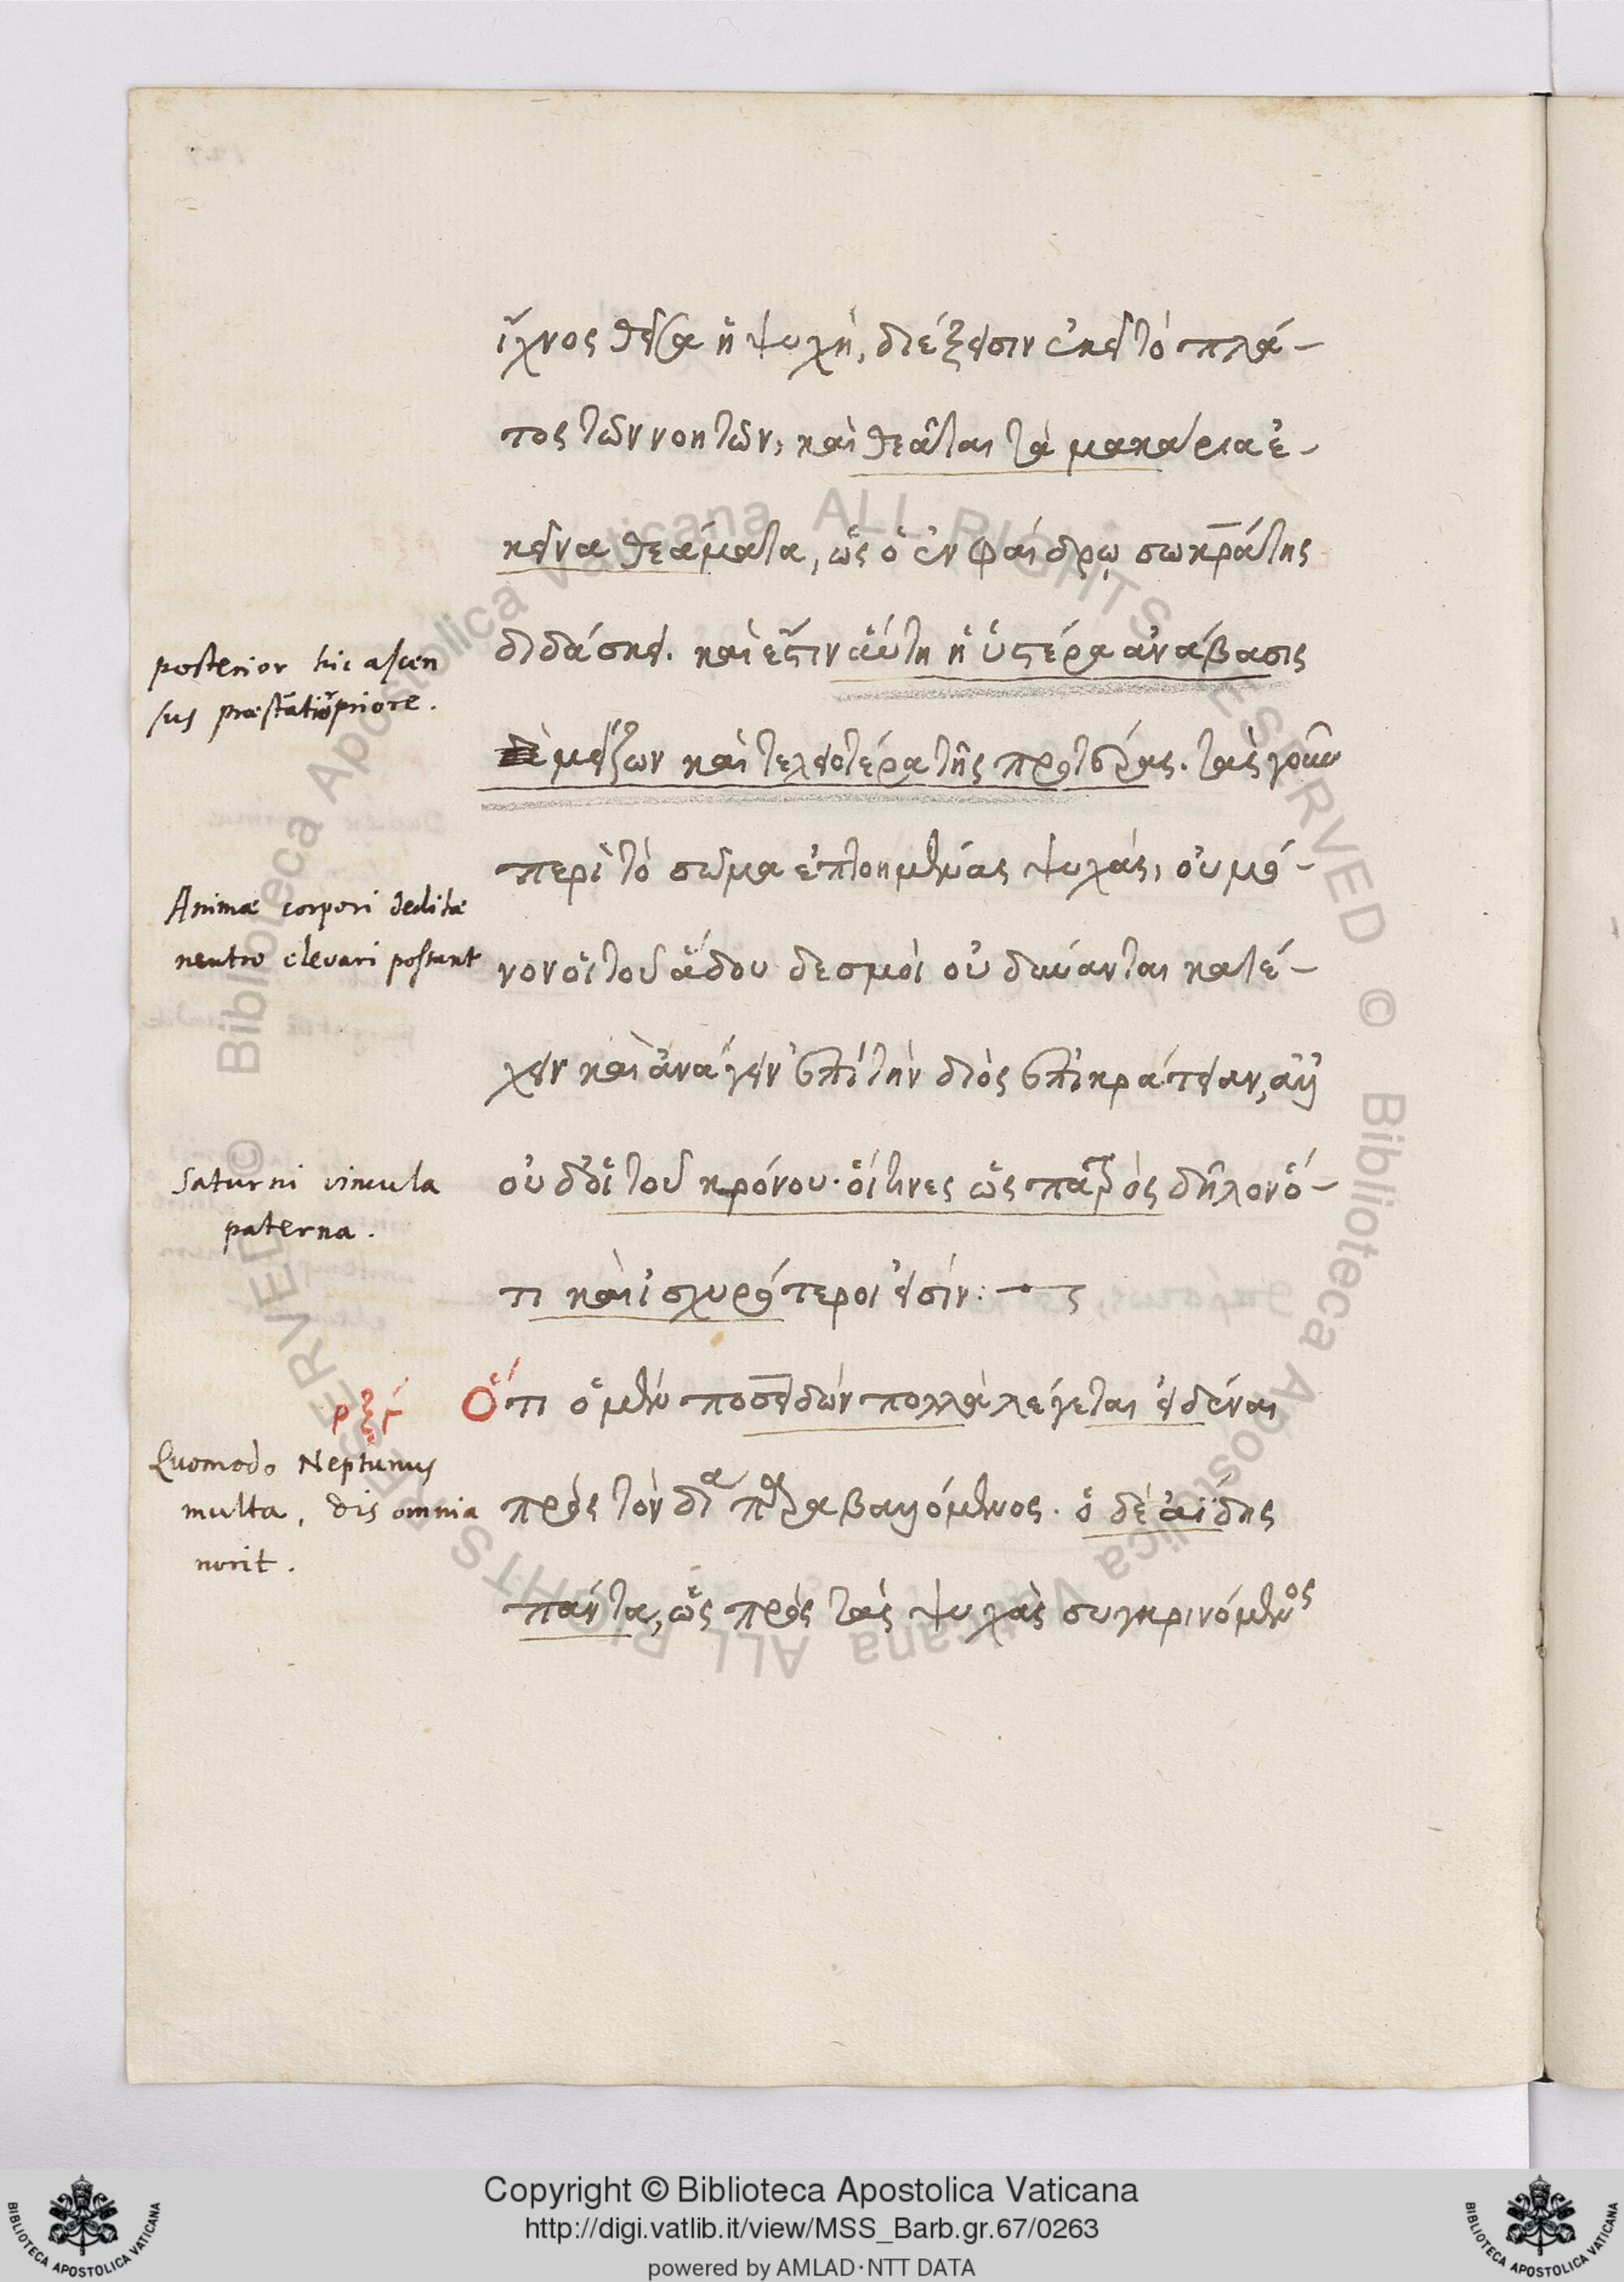 ἴχνος θεῖσα ἡ ψυχή, διέξεισιν ἐκεῖ τὸ πλά-
τος τῶν νοητῶν, καὶ θεᾶται τὰ μακάρια ἐ-
κεῖνα θεάματα, ὡς ὁ ἐν φαίδρῳ σωκράτης
διδάσκει. καὶ ἔστιν αὕτη ἡ ὑστέρα ἀνάβασις
μείζων καὶ τελειοτέρα τῆς προτέρας. τὰς γοῦν
περὶ τὸ σῶμα ἐπτοημένας ψυχάς, οὐ μό-
νον οἱ τοῦ ἅδου δεσμοὶ οὐ δύνανται κατέ-
χειν καὶ ἀνάγειν ἐπὶ τὴν διὸς ἐπικράτειαν, ἀλλ'
οὐδ' οἱ τοῦ κρόνου· οἵτινες ὡς πατρὸς δῆλον ὅ-
τι καὶ ἰσχυρότεροι εἰσίν:
Ὅτι ὁ μὲν ποσειδῶν πολλὰ λέγεται εἰδέναι
πρὸς τὸν δία παραβαλλόμενος. ὁ δὲ ἀΐδης
πάντα, ὡς πρὸς τὰς ψυχὰς συγκρινόμενος
posterior hic ascen
sus præstãtiõr priore.
Animæ corpori deditæ
neutro elevari possunt
Saturni vincula
paterna.
ρξγ
Quomodo Neptunus
multa, dis omnia
norit.
Copyright © Biblioteca Apostolica Vaticana
http://digi.vatlib.it/view/MSS_Barb.gr.67/0263
powered by AMLAD·NTT DATA
BIBLIOTECA APOSTOLICA VATICANA
BIBLIOTECA APOSTOLICA VATICANA
© Biblioteca Apostolica Vaticana ALL RIGHTS RESERVED
© Biblioteca Apostolica Vaticana ALL RIGHTS RESERVED